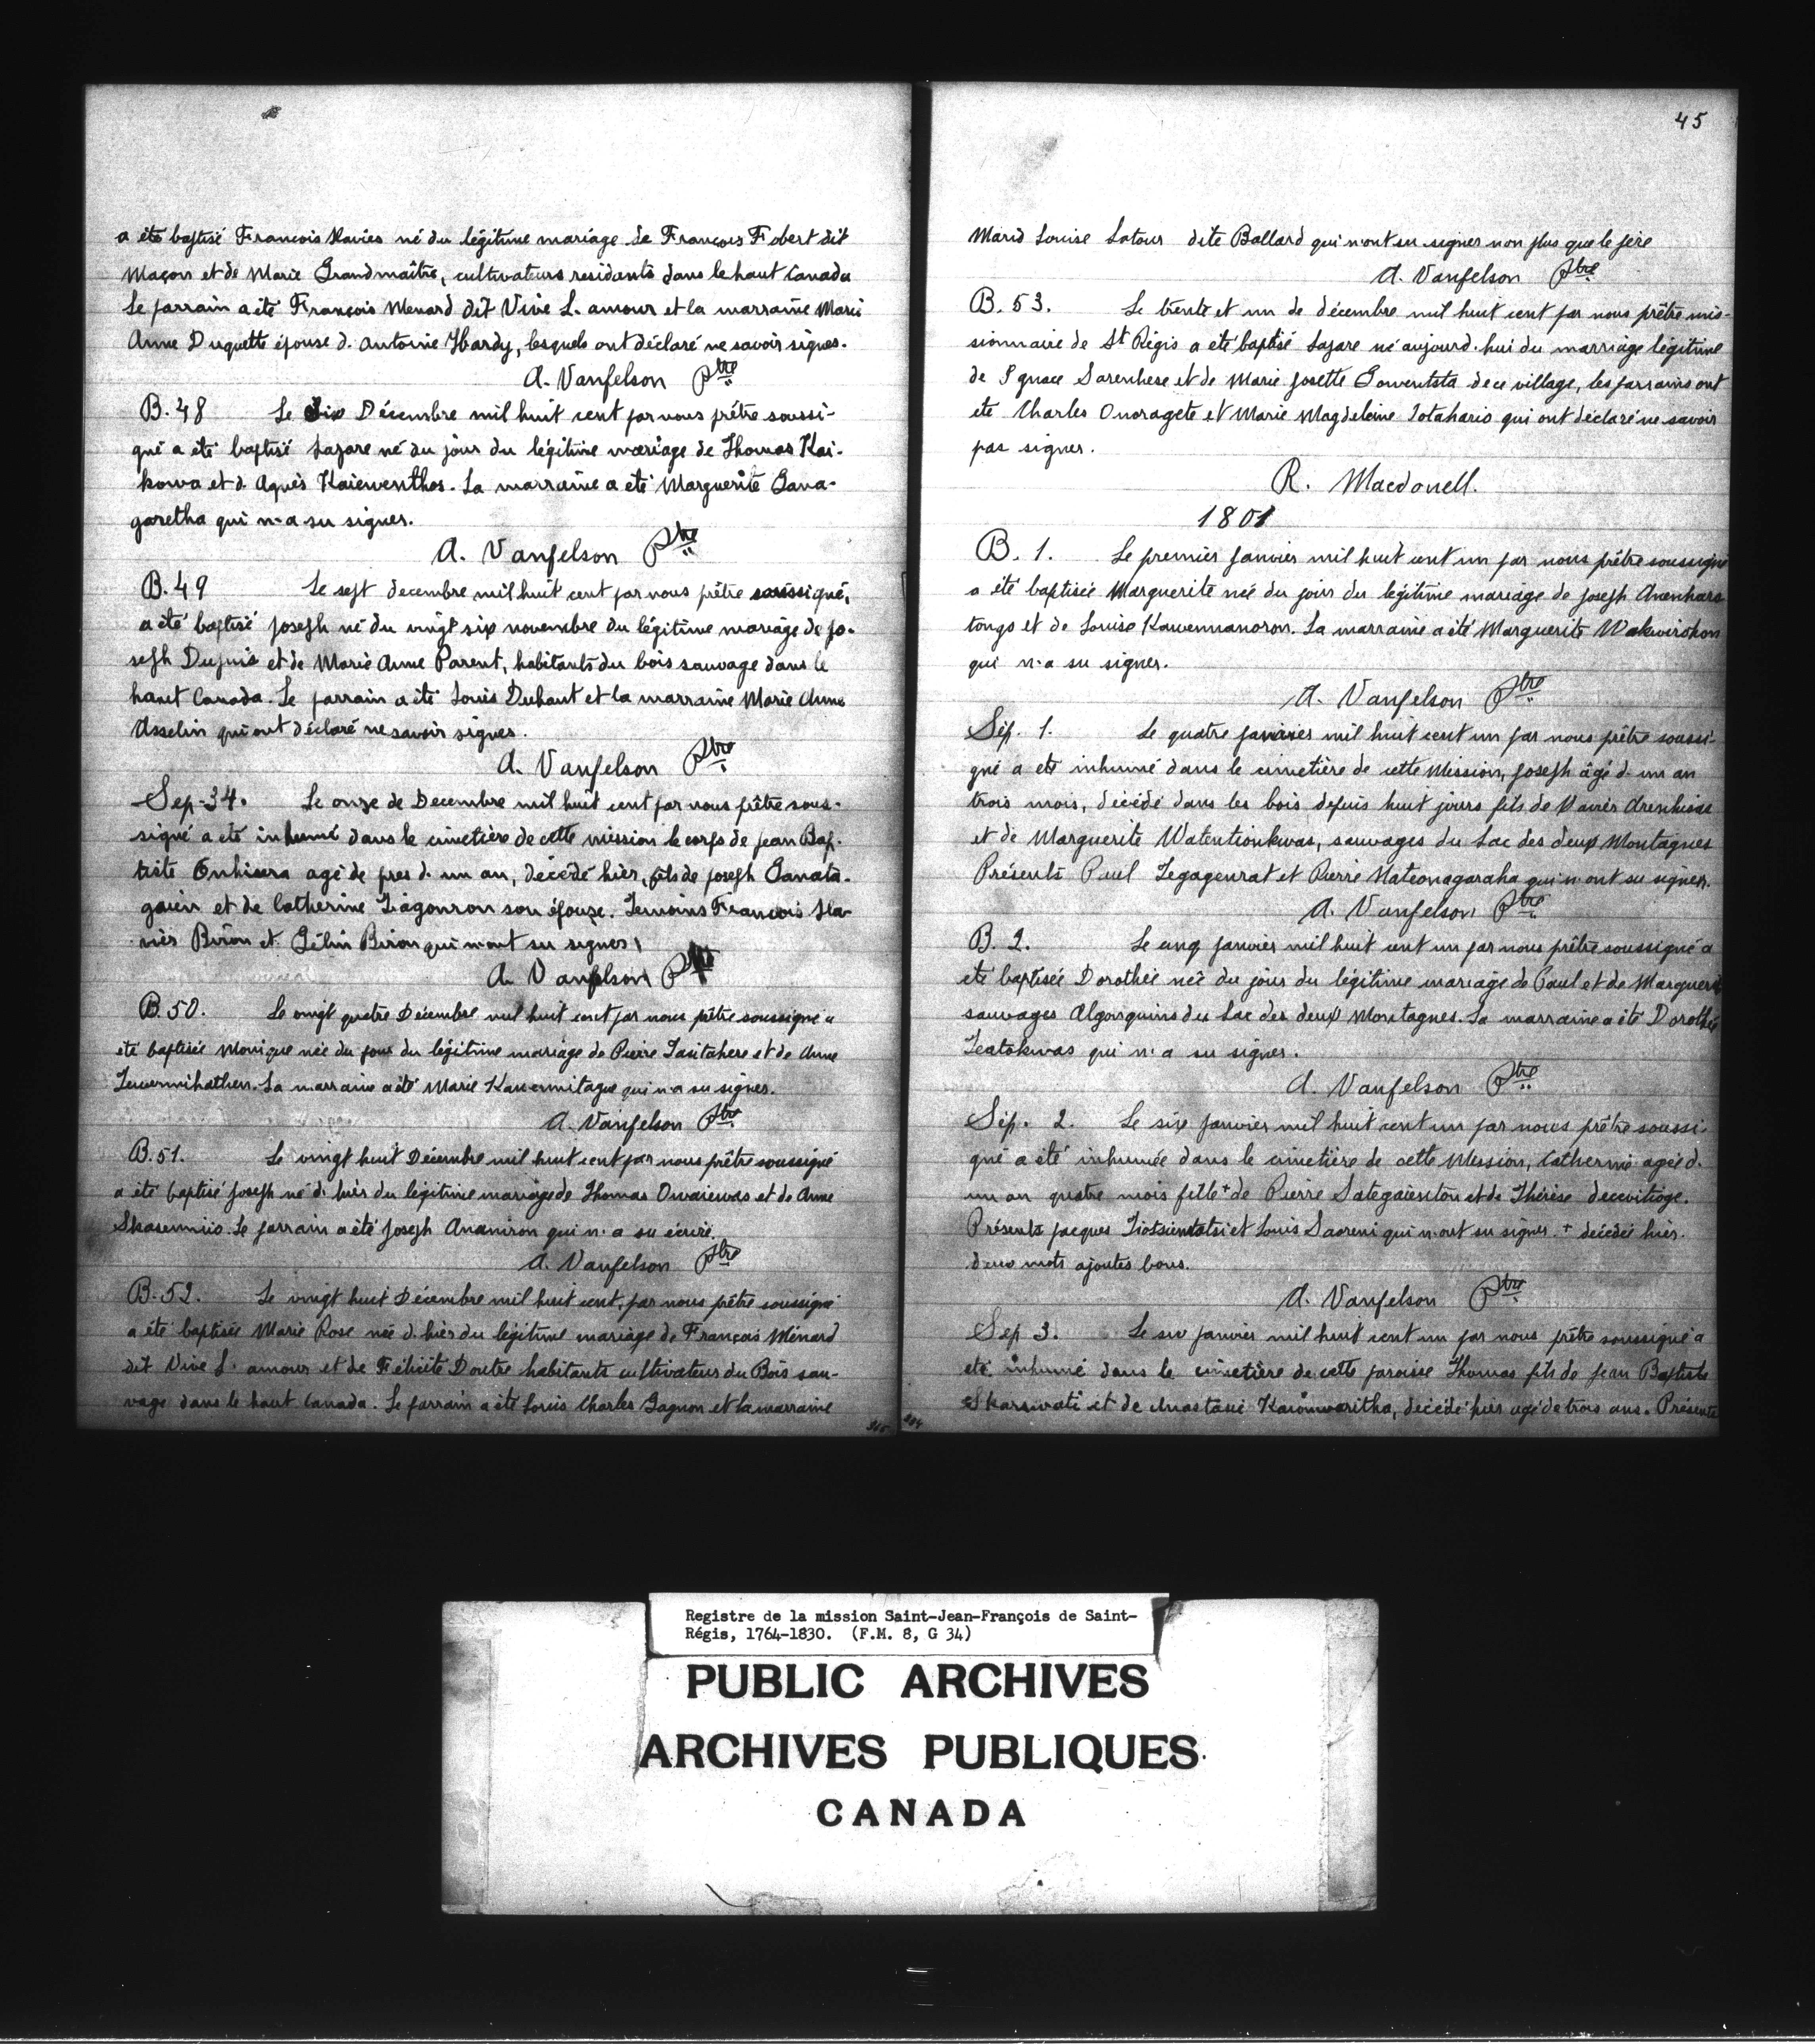 a été baptisé François Xavier né du légitime mariage de François Fobert dit
Maçon et de Marie Grandmaître, cultivateurs residants dans le haut Canada
Le parrain a été François Menard dit Vive L. amour et la marraine Marie
Anne Duquette épouse d. Antoine Hardy, lesquels ont déclaré ne savoir signer.
A. Vanfelson Ptre
B. 48 Le Six Décembre mil huit cent par nous prêtre soussi-
gné a été baptisé Lazare né du jour du légitime mariage de Thomas Kai-
kowa et d. Agnès Kaiewenthos. La marraine a été Marguerite Gana-
garetha qui n'a su signer.
A. Vanfelson Ptre
B. 49 Le sept decembre mil huit cent par nous prêtre soussigné,
a été baptisé Joseph né du vingt six novembre du légitime mariage de Jo-
seph Dupuis et de Marie Anne Parent, habitants du bois sauvage dans le
haut Canada. Le parrain a été Louis Duhaut et la marraine Marie Anne
Asselin qui ont déclaré ne savoir signer.
A. Vanfelson Ptre
Sep. 34. Le onze de Decembre mil huit cent par nous prêtre sous-
signé a été inhumé dans le cimetière de cette mission le corps de Jean Bap-
tiste Onhisera agé de pres d. un an, décédé hier, fils de Joseph Ganata-
gaien et de Catherine Tiagonron son épouze. Temoins François Xa-
vier Biron et Gélin Biron qui n'ont su signer,
A. Vanfelson Ptre
B. 50. Le vingt quatre Décembre mil huit cent par nous prêtre soussigné a
été baptisée Monique née du jour du légitime mariage de Pierre Tasitahere et de Anne
Tewennihathen. La marraine a été Marie Kawennitague qui n'a su signer.
A. Vanfelson Ptre
B. 51. Le vingt huit Décembre mil huit cent par nous prêtre soussigné
a été baptisé Joseph né d. hier du légitime mariage de Thomas Owaiewas et de Anne
Skasenniio. Le parrain a été Joseph Ananiron qui n'a su écrire.
A. Vanfelson Ptre
B. 52. Le vingt huit Décembre mil huit cent, par nous prêtre soussigné
a été baptisée Marie Rose née d. hier du légitime mariage de François Ménard
dit Vive L. amour et de Félicité Doutre habitants cultivateur du Bois sau-
vage dans le haut Canada. Le parrain a été Louis Charles Gagnon et la marraine
45
Marie Louise Latour dite Ballard qui n'ont su signer non plus que le père
A. Vanfelson Ptre
B. 53. Le trente et un de décembre mil huit cent par nous prêtre mis-
sionnaire de St Régis a été baptisé Lazare né aujourd. hui du marriage légitime
de Ignace Sarenhese et de Marie Josette Gowentsta de ce village, les parrains ont
été Charles Onoragete et Marie Magdeleine Iotahario qui ont déclaré ne savoir
pas signer.
R. Macdonell.
1801
B. 1. Le premier Janvier mil huit cent un par nous prêtre soussigné
a été baptisée Marguerite née du jour du légitime mariage de Joseph Anenhara
tongo et de Louise Kawennanoron. La marraine a été Marguerite Wakwirohon
qui n'a su signer.
A. Vanfelson Ptre
Sép. 1. Le quatre janvier mil huit cent un par nous prêtre soussi-
gné a été inhumé dans le cimetière de cette Mission, Joseph âgé d. un an
trois mois, décédé dans les bois depuis huit jours fils de Xavier
et de Marguerite Watentionkwas, sauvages du Lac des deux Montagnes
Présents Paul Tegagenrat et Pierre Hateonagaraha qui n'ont su signer.
A. Vanfelson Ptre
B. 2. Le cinq Janvier mil huit cent un par nous prêtre soussigné a
été baptisée Dorothée née du jour du légitime mariage de Paul et de Marguerit
sauvages Algonquins du Lac des deux Montagnes. La marraine a été Dorothée
Teatokwas qui n'a su signer.
A. Vanfelson Ptre
Sép. 2. Le six janvier mil huit cent un par nous prêtre soussi-
gné a été inhumée dans le cimetière de cette Mission, Catherine agée d.
un an quatre mois fille + de Pierre Sategaienton et de Thérèse
Présents Jacques Tiotsientotsi et Louis Saoreni qui n'ont su signer. + décédée hier.
deux mots ajoutes bons.
A. Vanfelson Ptre
Sep 3. Le six Janvier mil huit cent un par nous prêtre soussigné a
été inhumé dans le cimetière de cette paroisse Thomas fils de Jean Baptiste
Skarowati et de Anastasie Kaionwaritha, décédé hier agé de trois ans. Présents
Registre de la mission Saint-Jean-François de Saint-
Régis, 1764-1830. (F.M. 8, G 34)
PUBLIC ARCHIVES
ARCHIVES PUBLIQUES
CANADA